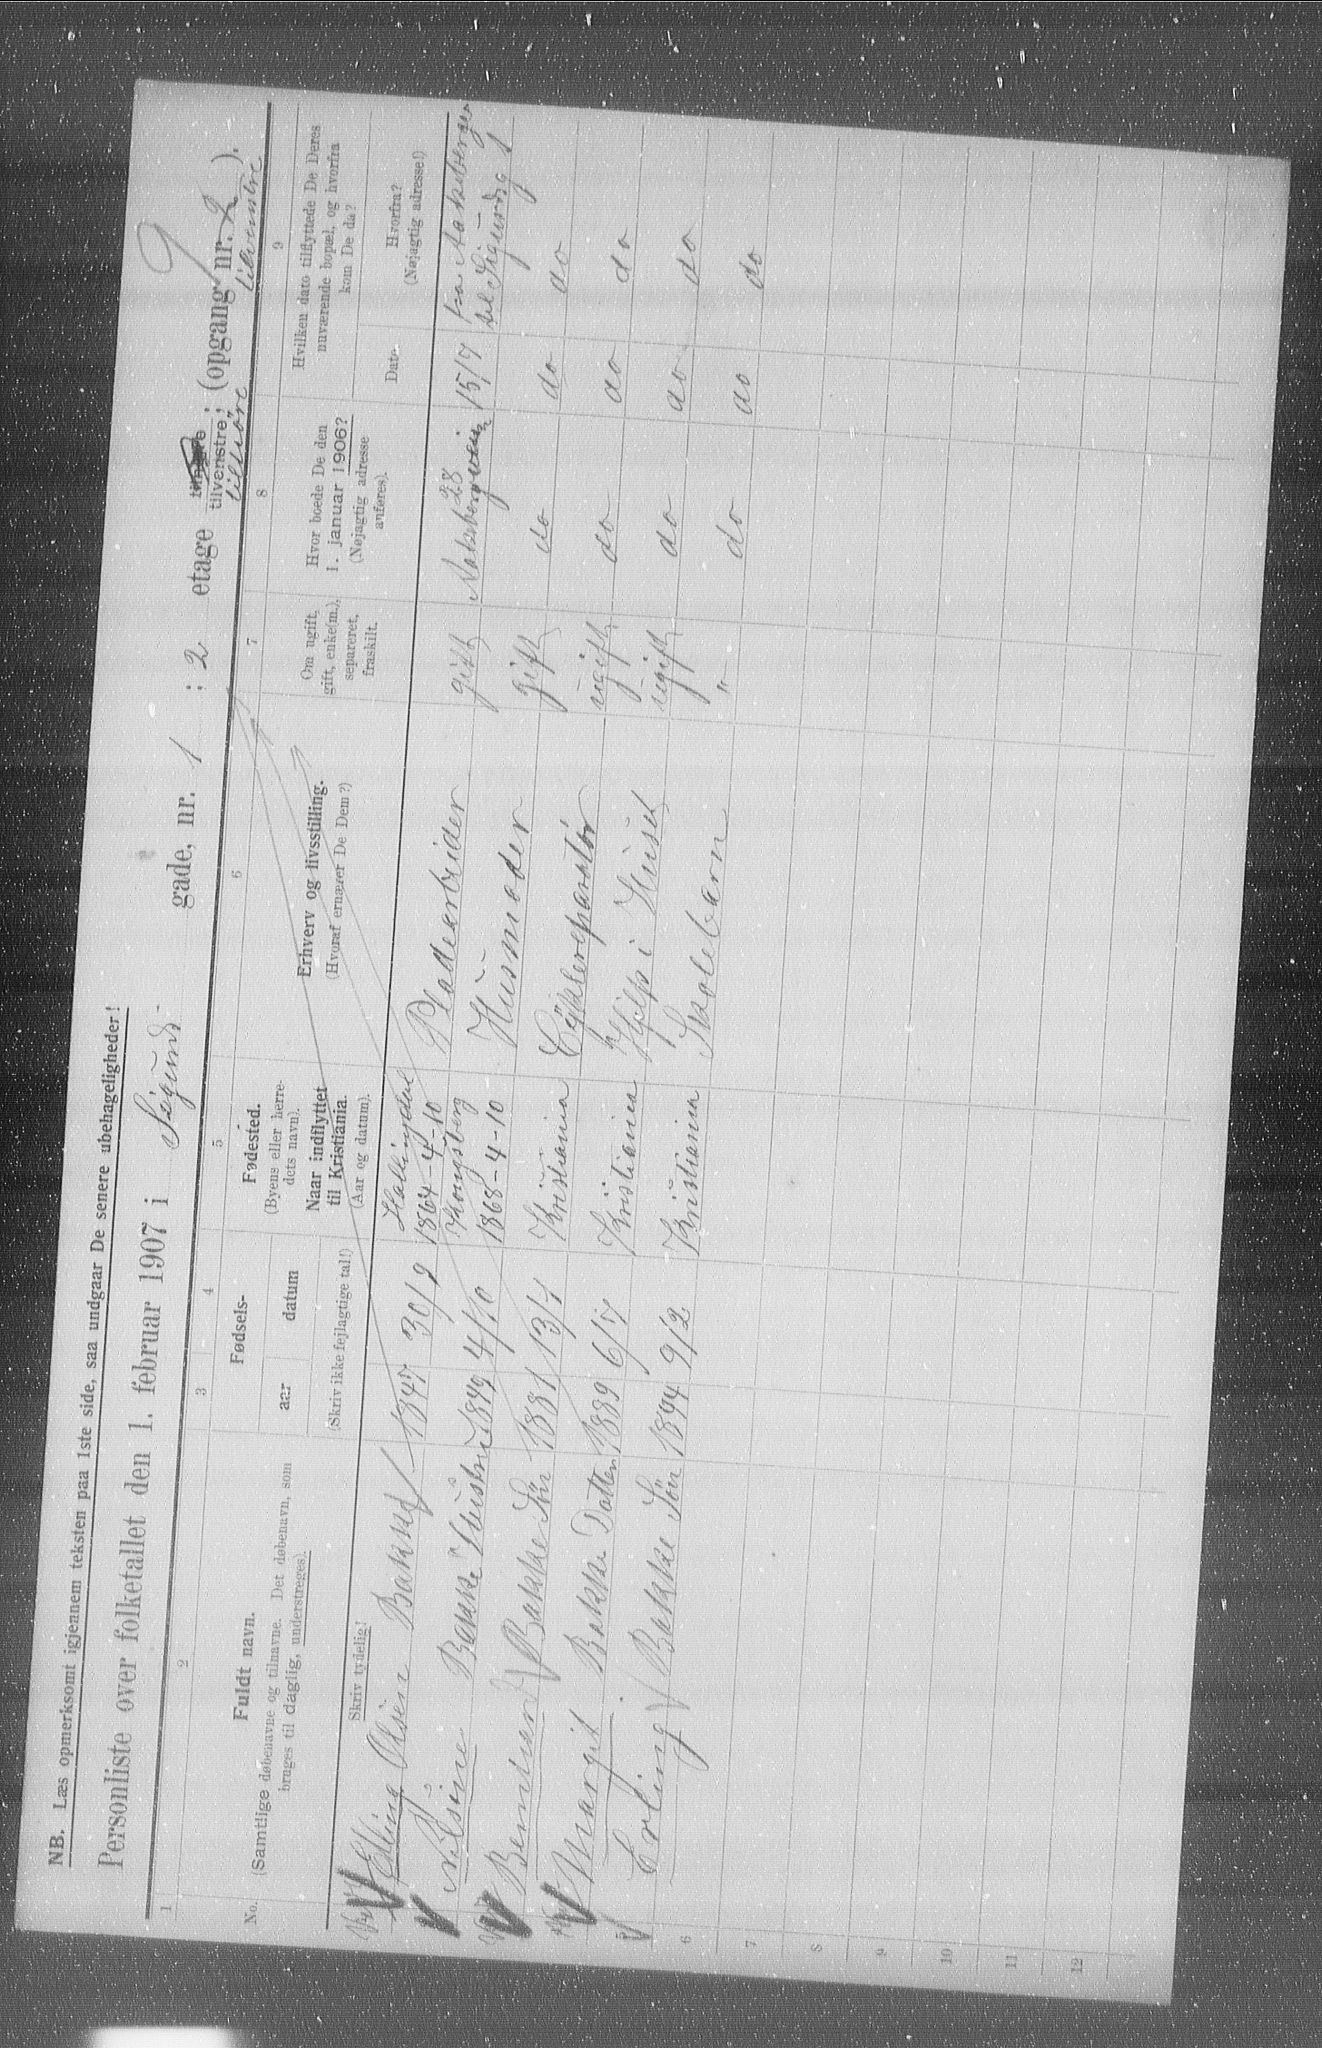 NB. Læs opmerksomt igjennem teksten paa 1ste side, saa undgaar De senere ubehageligheder!
Personliste over folketallet den 1. februar 1907 i Sigurds- gade, nr. 1 ; 2 etage tilvenstre; (opgang nr. 2).
tilhöire tilvenstre
1 2 3 4 5 6 7 8 9
No.
Fuldt navn.
(Samtlige døbenavne og tilnavne. Det døbenavn, som
bruges til daglig, understreges).
Skriv tydelig!
Fødsels-
aar datum
(Skriv ikke fejlagtige tal!)
Fødested.
(Byens eller herre-
dets navn).
Naar indflyttet
til Kristiania.
(Aar og datum).
Erhverv og livsstilling.
(Hvoraf ernærer De Dem?)
Om ugift,
gift, enke(m.),
separeret,
fraskilt.
Hvor boede De den
1. januar 1906?
(Nøjagtig adresse
anføres).
Hvilken dato tilflyttede De Deres
nuværende bopæl, og hvorfra
kom De da?
Dato.
Hvorfra?
(Nøjagtig adresse!)
Elling Olsen Bakke 1847 30/9 Hallingdal 1864-4-10 Pladearbeider gift 28 15/7 fra
til Sigurdsg 1
Nilsine Bakke Hustru 1849 4/10 Kongsberg 1868-4-10 Husmoder gift do do do
Berntsen Bakke Sön 1881 13/7 Kristiania Cyklereparatör ugift do do do
Margit Bakke Datter 1889 6/7 Kristiania Hjelp i Huset ugift do do do
5 Erling Bakke Sön 1894 9/2 Kristiania Skolebarn " do do do
6
7
8
9
10
11
12